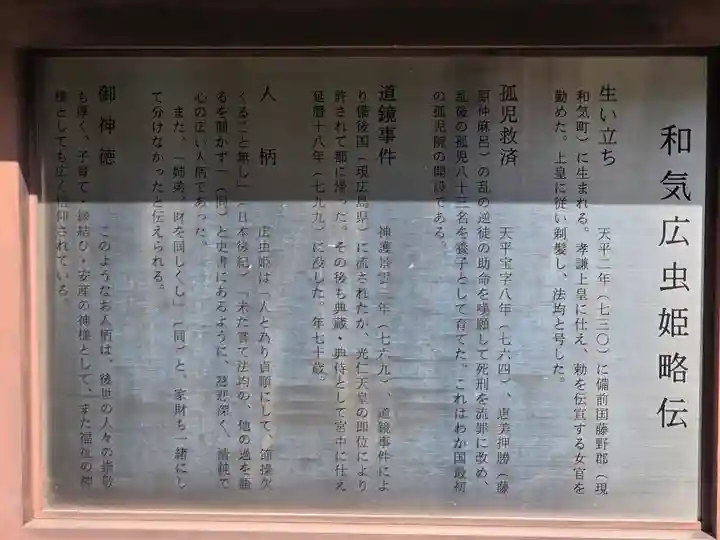 和気広虫姫略伝
生い立ち　天平二年(七三〇)に備前国藤野郡(現
和気町)に生まれる。孝謙上皇に仕え、勅を伝宣する女官を
勤めた。上皇に従い剃髪し、法均と号した。
孤児救済　天平宝字八年(七六四)、恵美押勝(藤
原仲麻呂)の乱の逆徒の助命を嘆願して死刑を流罪に改め、
乱後の孤児八十三名を養子として育てた。これはわが国最初
の孤児院の開設である。
道鏡事件　神護景雲三年(七六九)、道鏡事件によ
り備後国(現広島県)に流されたが、光仁天皇の即位により
許されて都に帰った。その後も典蔵・典侍として宮中に仕え
延暦十八年(七九九)に没した。年七十歳。
人柄　広虫姫は「人と為り貞順にして、節操欠
くること無し」(日本後紀)「未だ嘗て法均の、他の過を語
るを聞かず」(同)と史書にあるように、慈悲深く、清純で
心の広い人柄であった。
また、「姉弟、財を同じくし」(同)と、家財も一緒にし
て分けなかったと伝えられる。
御神徳　このようなお人柄は、後世の人々の崇敬
も厚く、子育て・縁結び・安産の神様として、また福祉の神
様としても広く信仰されている。